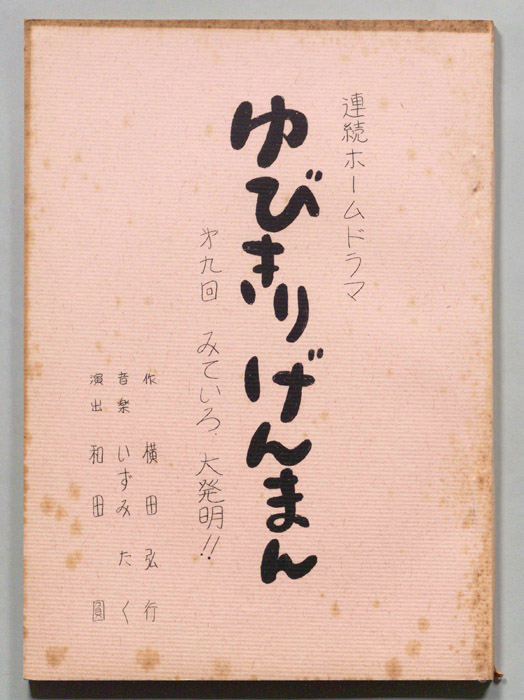 連続ホームドラマ
ゆびきりげんまん
第九回 みていろ、大発明!!
作 横田弘行
音楽 いずみたく
演出 和田圓